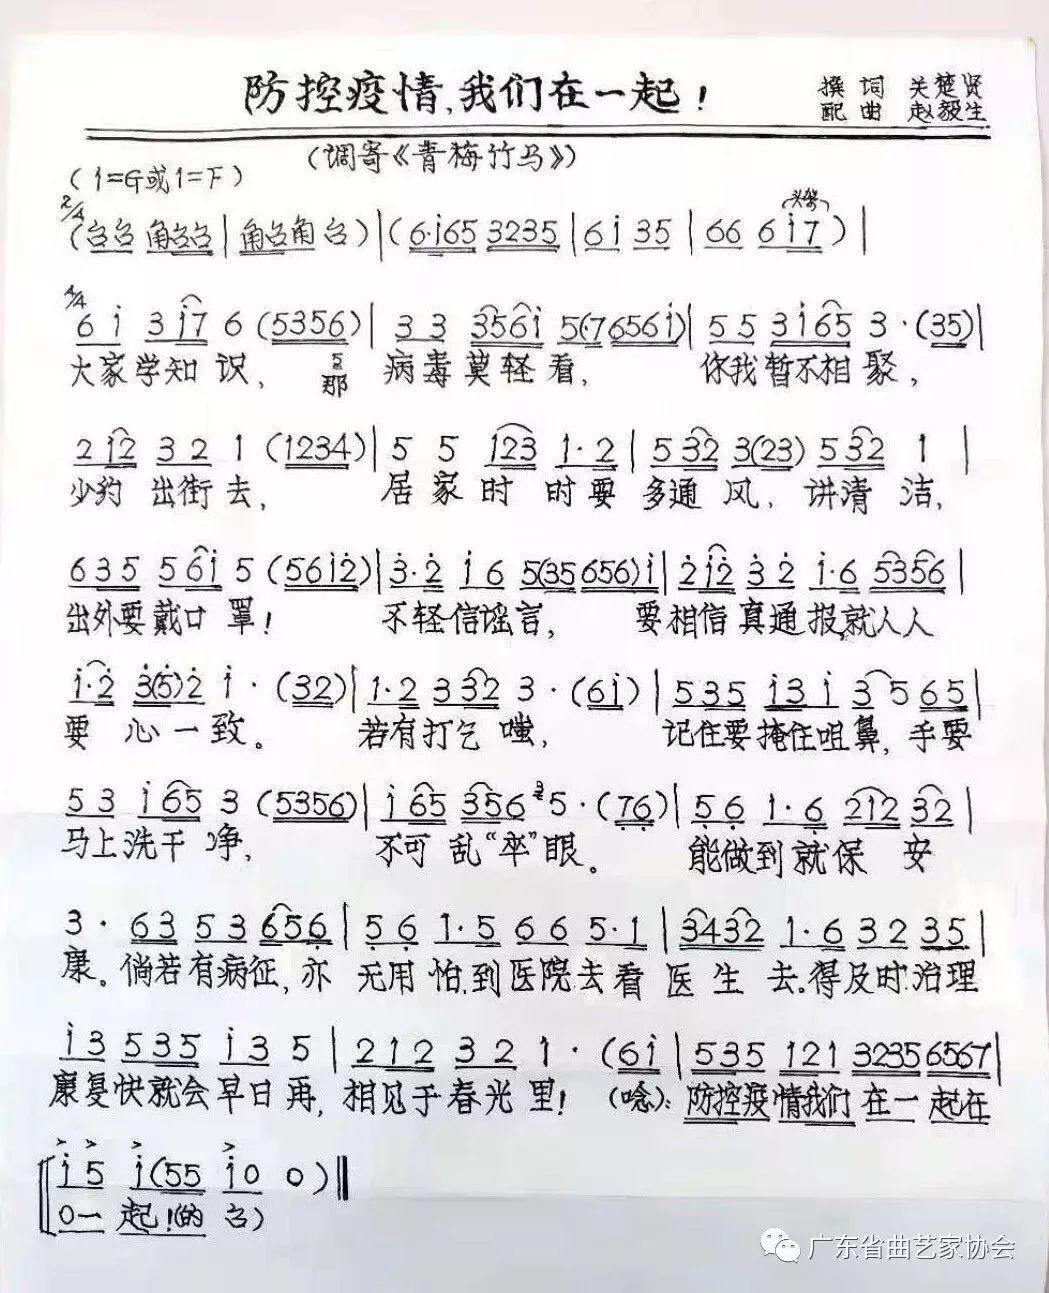 防控疫情,我们在一起!
撰词 关楚贤
配曲 赵毅生
(调寄《青梅竹马》)
(1=G或1=F)
2/4
(6·i65 3235 | 6i 35 | 66 6i7) |
4/4
6i 3i7 6 (5356) | 33 356i 5(·7 6561) | 55 3i65 3·(35) |
大家学知识, 那 病毒莫轻看, 你我暂不相聚,
2i2 32 1 (1234) | 5 5 123 1·2 | 532 3(23) 532 1 |
少约出街去, 居家时时要多通风, 讲清洁,
635 56i 5 (56i2) | 3·2 i6 5(35 656)i | 2i2 32 i·6 5356 |
出外要戴口罩! 不轻信谣言, 要相信真通报,就人人
i·2 3(5)2 i·(32) | 1·2 332 3·(6i) | 535 i3i 3 5 65 |
要心一致。 若有打乞嗤, 记住要掩住咀鼻,手要
53 i65 3 (5356) | i65 356 5·(76) | 56 1·6 212 32 |
马上洗干净, 不可乱“卒”眼。 能做到就保安
3·63 53 656 | 56 1·5 66 5·1 | 3432 1·6 32 35 |
康。倘若有病征,亦无用怕,到医院去看医生去。得及时治理
i3 535 i3 5 | 212 32 1·(6i | 535 121 3235 6567 |
康复快就会早日再,相见于春光里!(唸):防控疫情我们在一起在
i5 i(55 i0 0) ‖
0一起!(的 )
广东省曲艺家协会